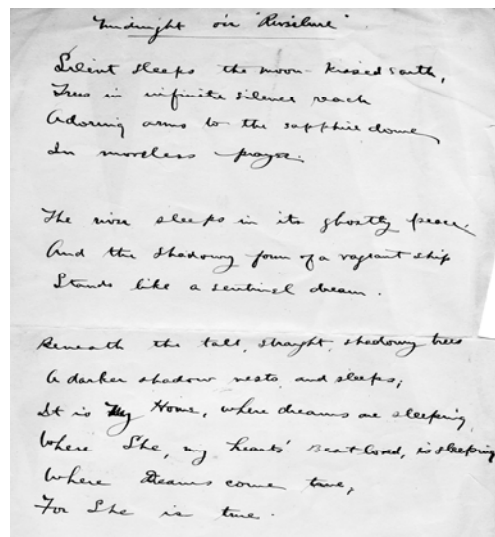 Midnight on "Riverlure"
Silent sleeps the moon-kissed earth,
Trees in infinite silence reach
Adoring arms to the sapphire dome,
In wordless prayer.
The river sleeps in its ghostly peace.
And the shadowy form of a vagrant ship
Stands like a sentinel dream.
Beneath the tall, straight, shadowy trees
A darker shadow rests, and sleeps;
It is My Home, where dreams are sleeping
Where She, my hearts' Best loved, is sleeping
Where Dreams come true,
For She is true.